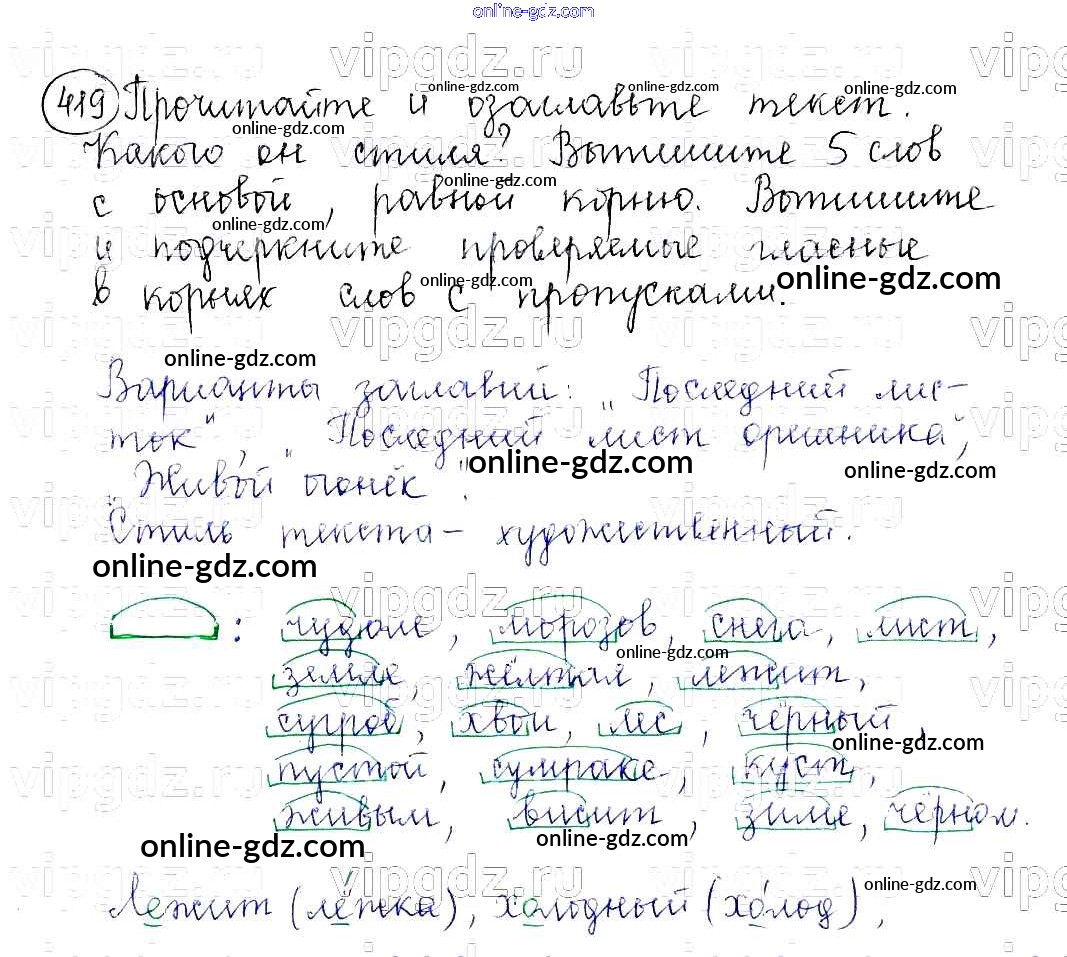 online-gdz.com
419 Прочитайте и озаглавьте текст.
Какого он стиля? Выпишите 5 слов
с основой, равной корню. Выпишите
и подчеркните проверяемые гласные
в корнях слов с пропусками.
Варианты заглавий: „Последний лис-
ток", „Последний лист орешника",
„Живой огонёк".
Стиль текста - художественный.
: чудом, морозов, снега, лист,
земле, жёлтая, лежит,
сугроб, хвои, лес, чёрный,
пустой, сумраке, куст,
живым, висит, зиме, чёрном.
Лежит (лёжка), холодный (хо́лод),